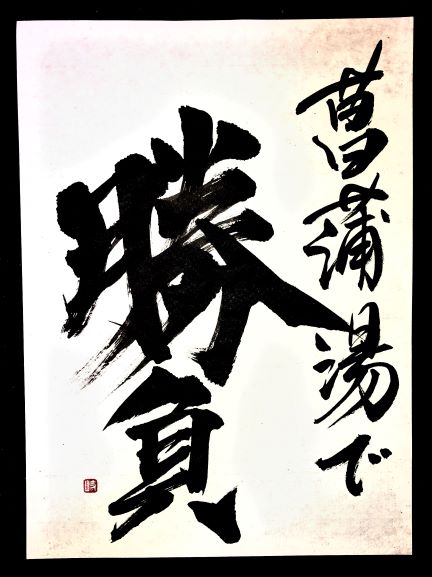 菖蒲湯で
勝負